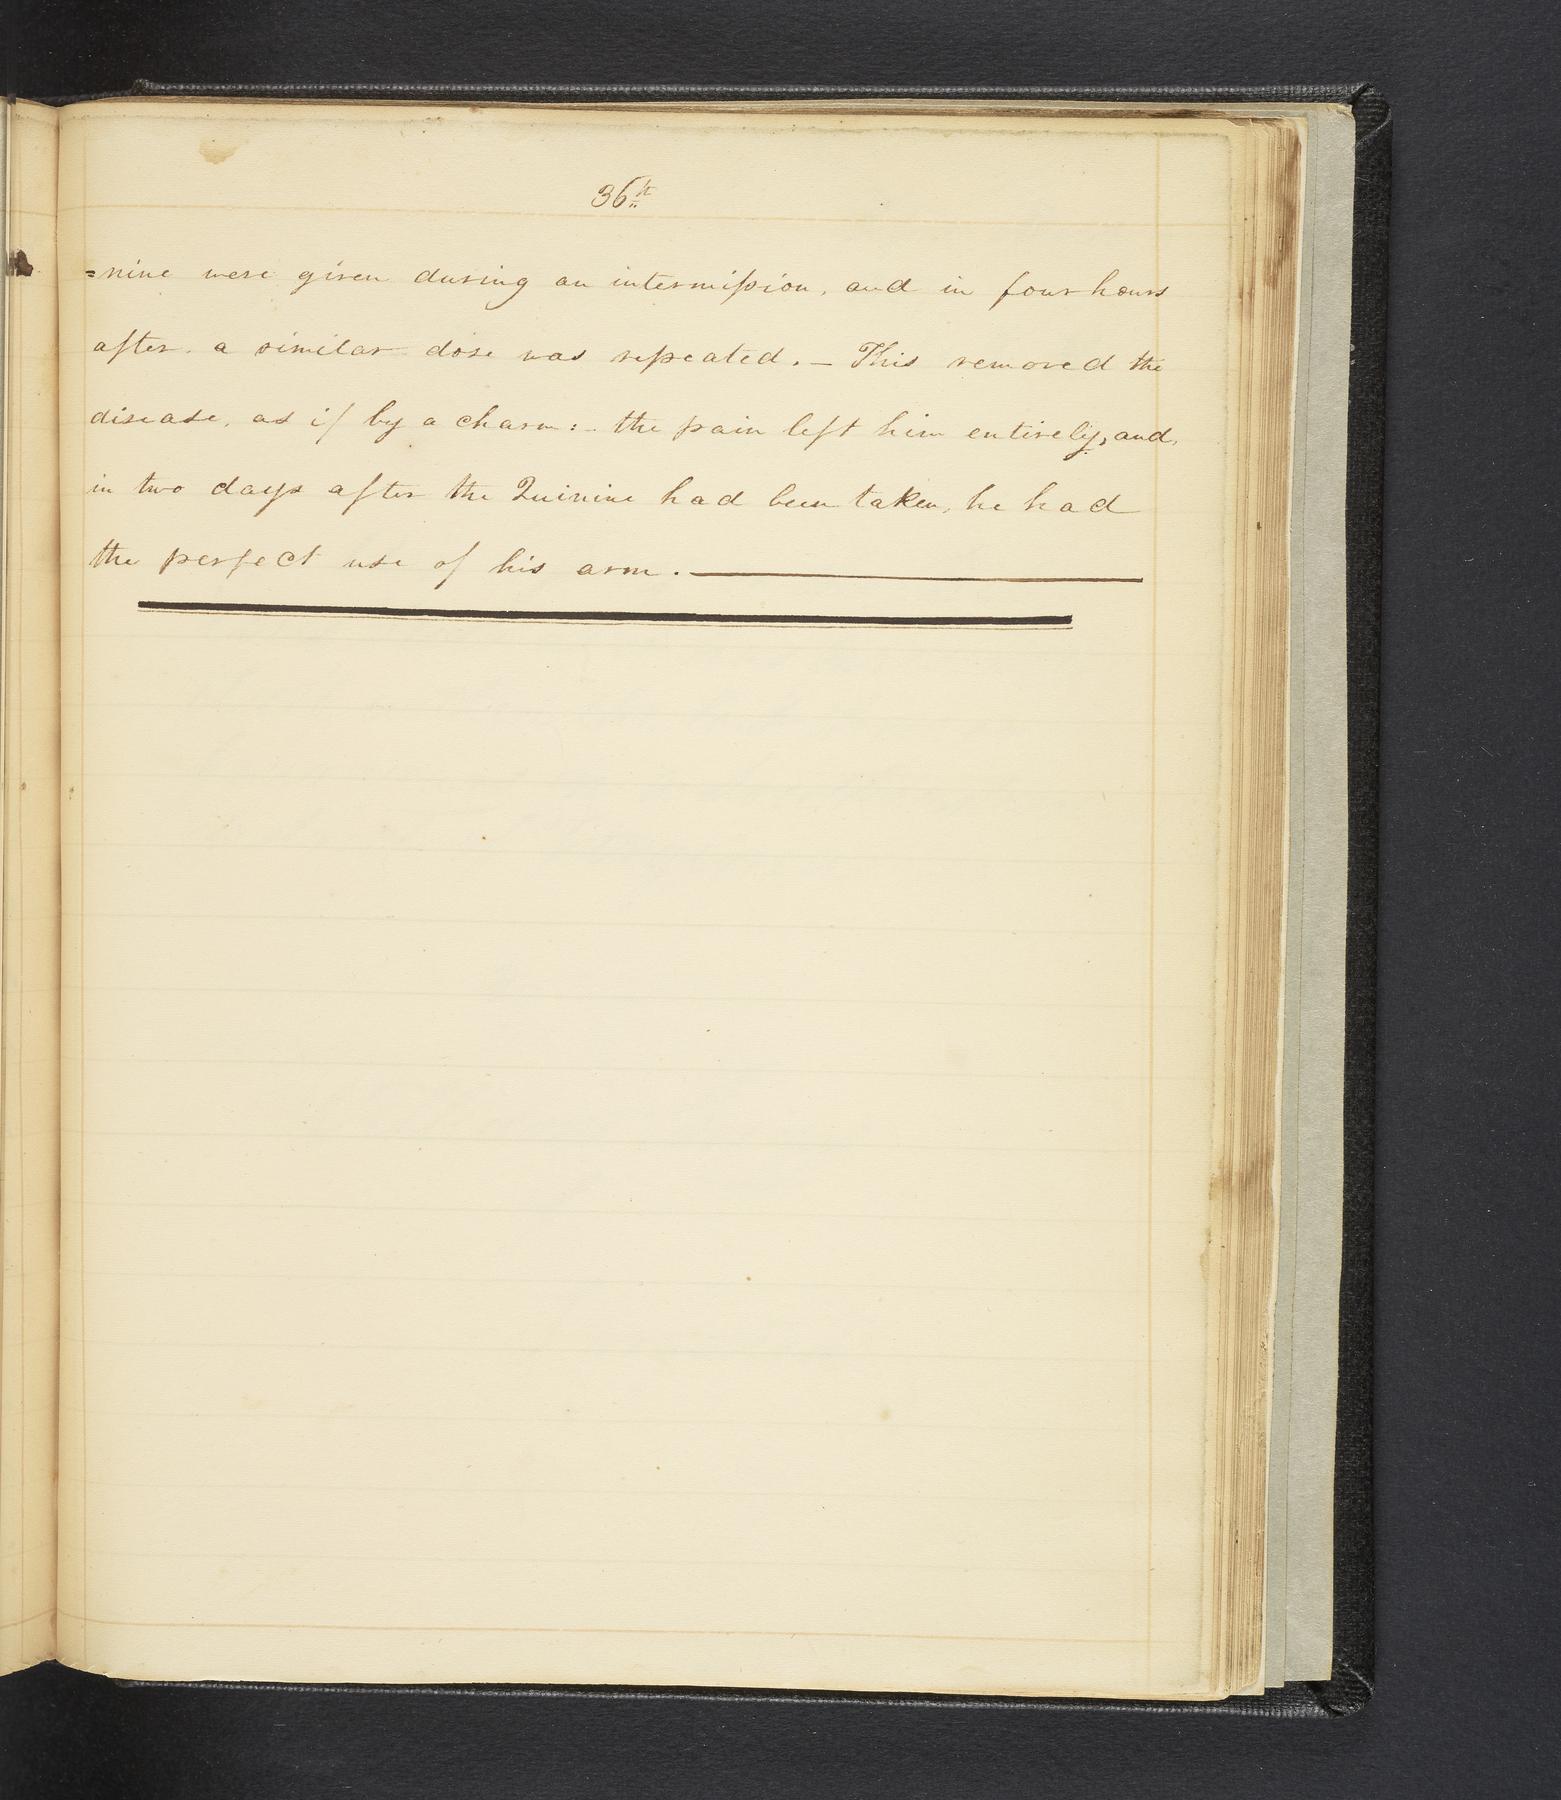 36th
=nine were given during an intermiſsion, and in four hours
after. a similar dose was repeated. — This removed the
disease, as if by a charm :- the pain left him entirely, and,
in two days after the Quinine had been taken, he had
the perfect use of his arm. —